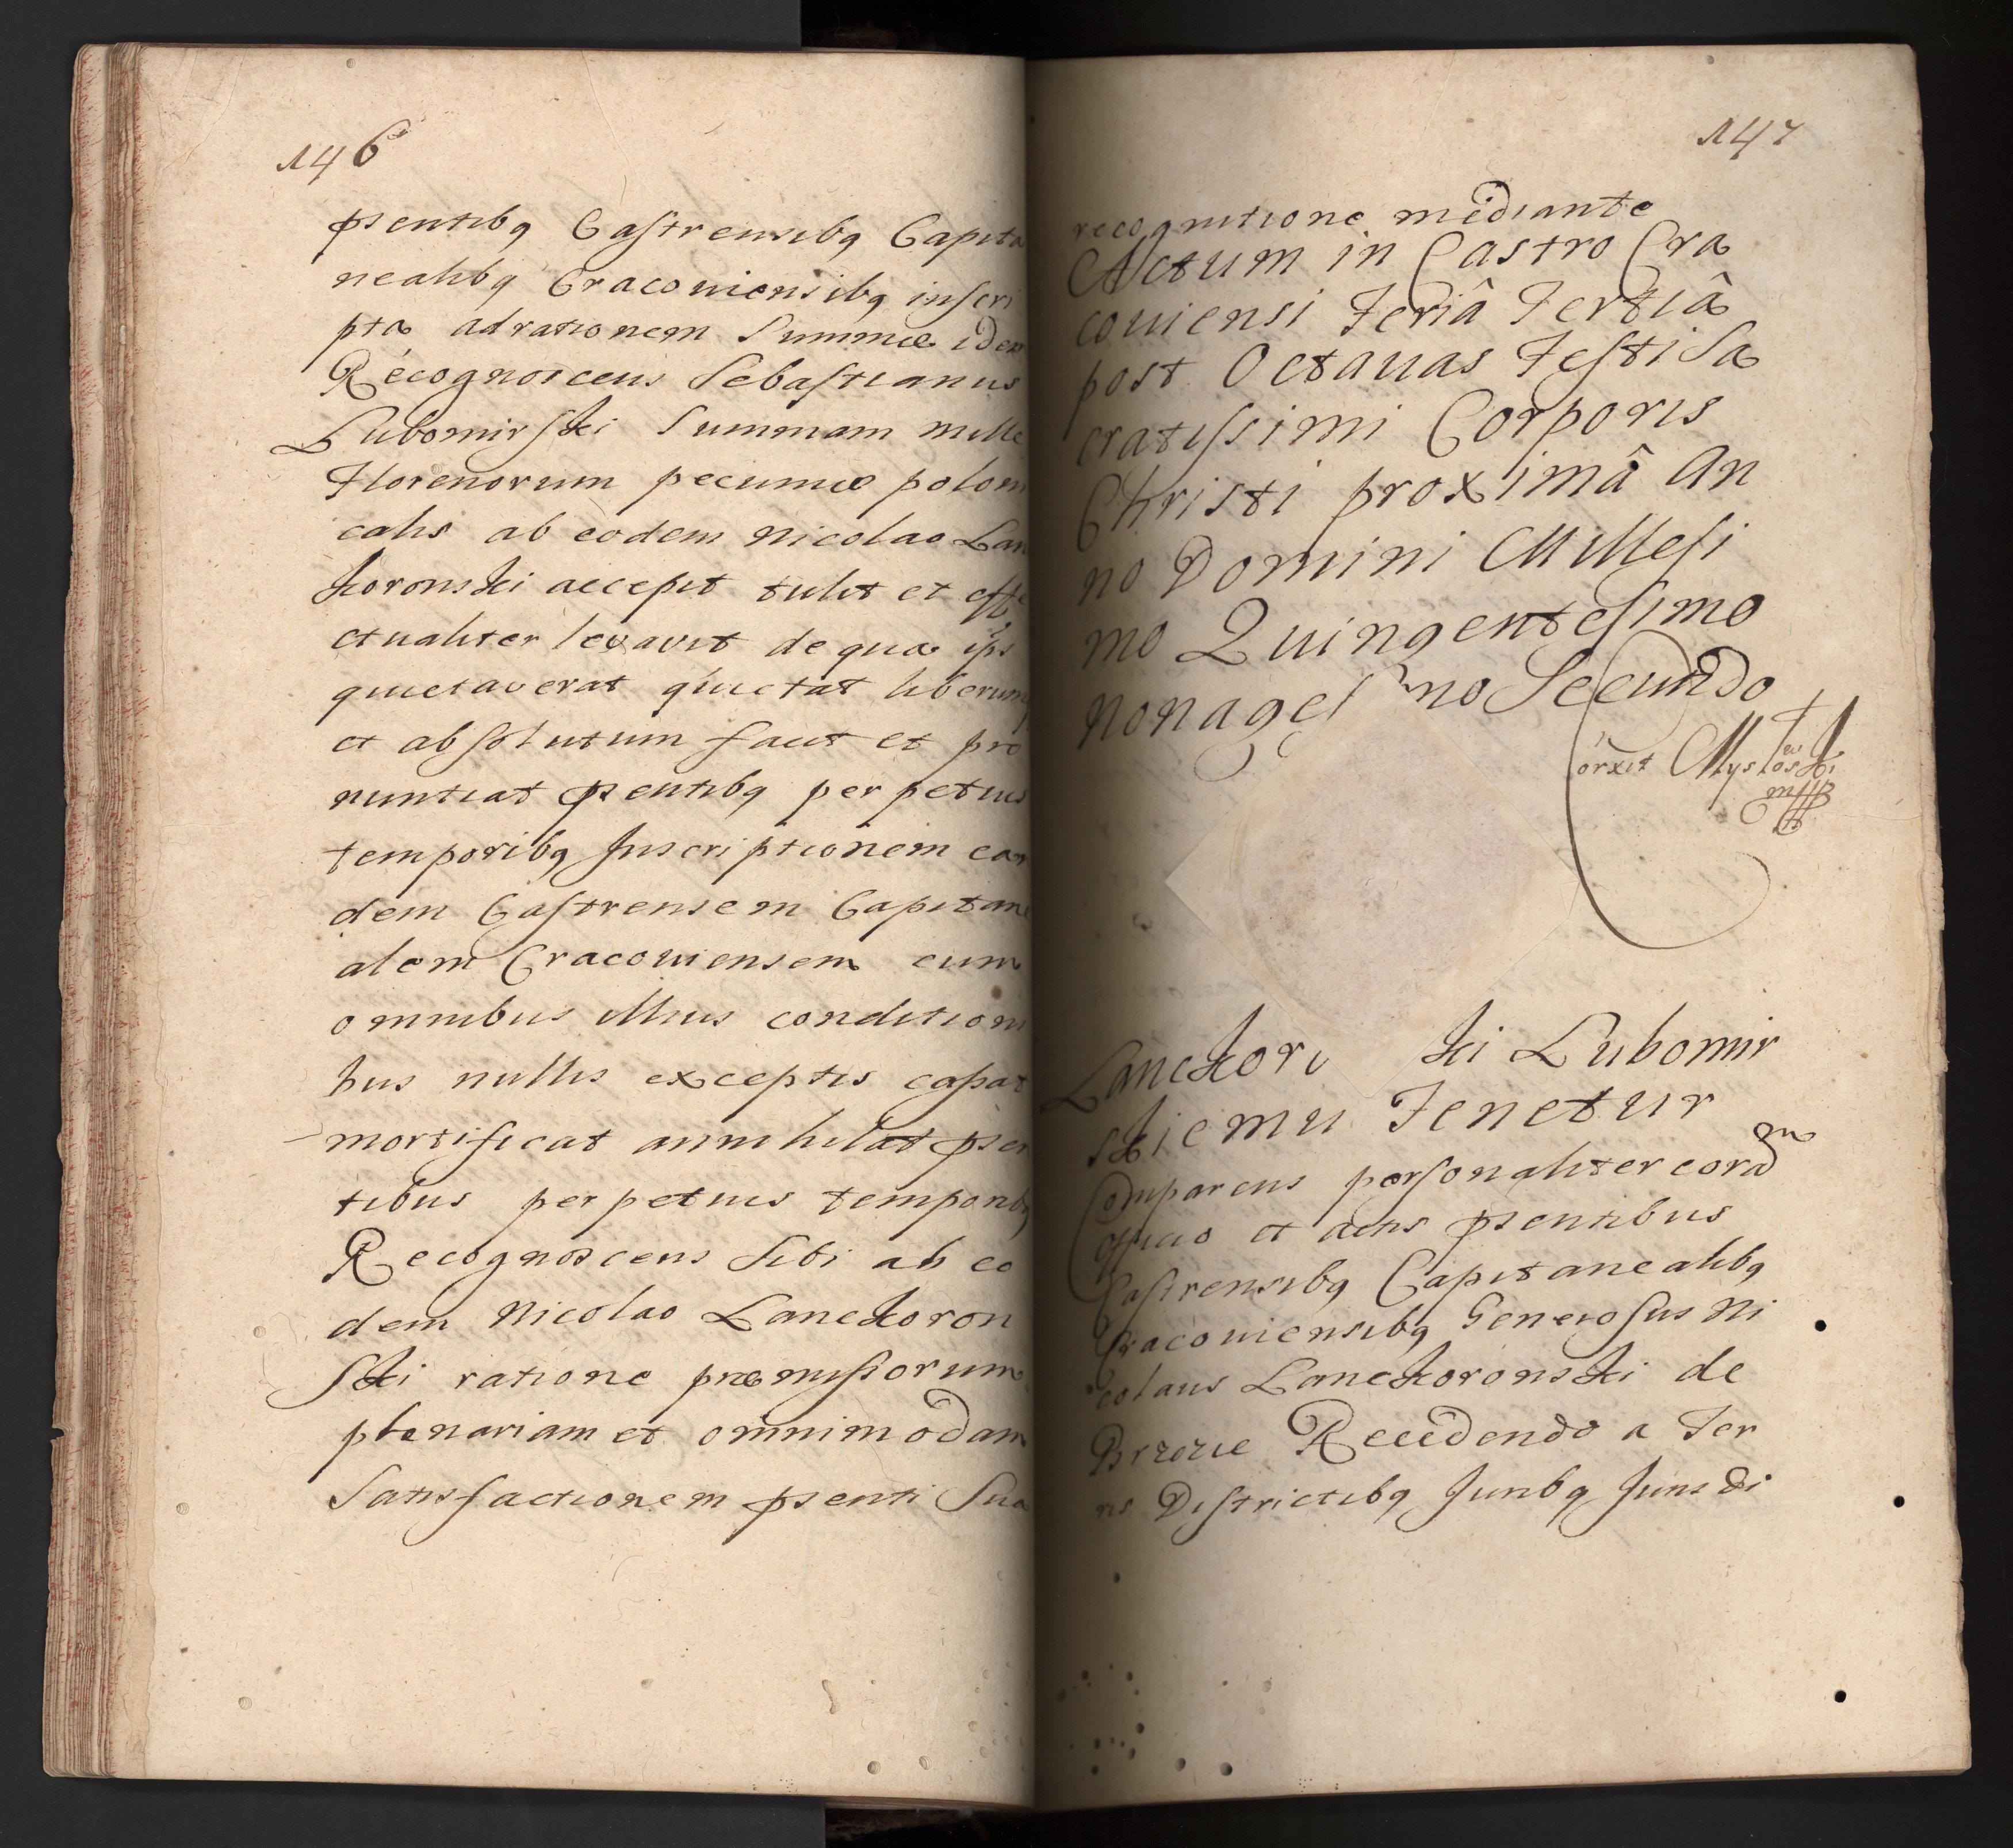 146
psentibq Castrensibq Capita
nealibq Cracoviensibq inscri
pta ad rationem Summæ idem
Recognoscens Sebastianus
Lubomirski Summam mille
Florenorum pecuniæ poloni
calis ab eodem Nicolao Lan
koronski accepit tulit et effe
ctualiter levavit de qua ipsū
quietaverat quietat liberum
et absolutum facit et pro
nuntiat psentibq perpetuis
temporibq Inscriptionem ean
dem Castrensem Capitane
alem Cracoviensem cum
omnibus illius conditioni
bus nullis exceptis cassat
mortificat annihilat psen
tibus perpetuis temporibq
Recognoscens Sibi ab eo
dem Nicolao Lanckoron
ski ratione præmissorum
plenariam et omnimodam
Satisfactionem psenti Sua
147
recognitione mediante
Actum in Castro Cra
coviensi Feriâ Tertiâ
post Octavas Festi Sa
cratissimi Corporis
Christi proximâ An
no Domini Millesi
mo Quingentesimo
nonages mo Secundo
Corxit Mysłowski
mpp
Lanckoro ki Lubomir
skiemu Tenetur
Comparens personaliter corā
officio et actis psentibus
Castrensibq Capitanealibq
Cracoviensibq Generosus Ni
colaus Lanckoronski de
Brzezie Recedendo a Ter
ris Districtibq Juribq Jurisdi